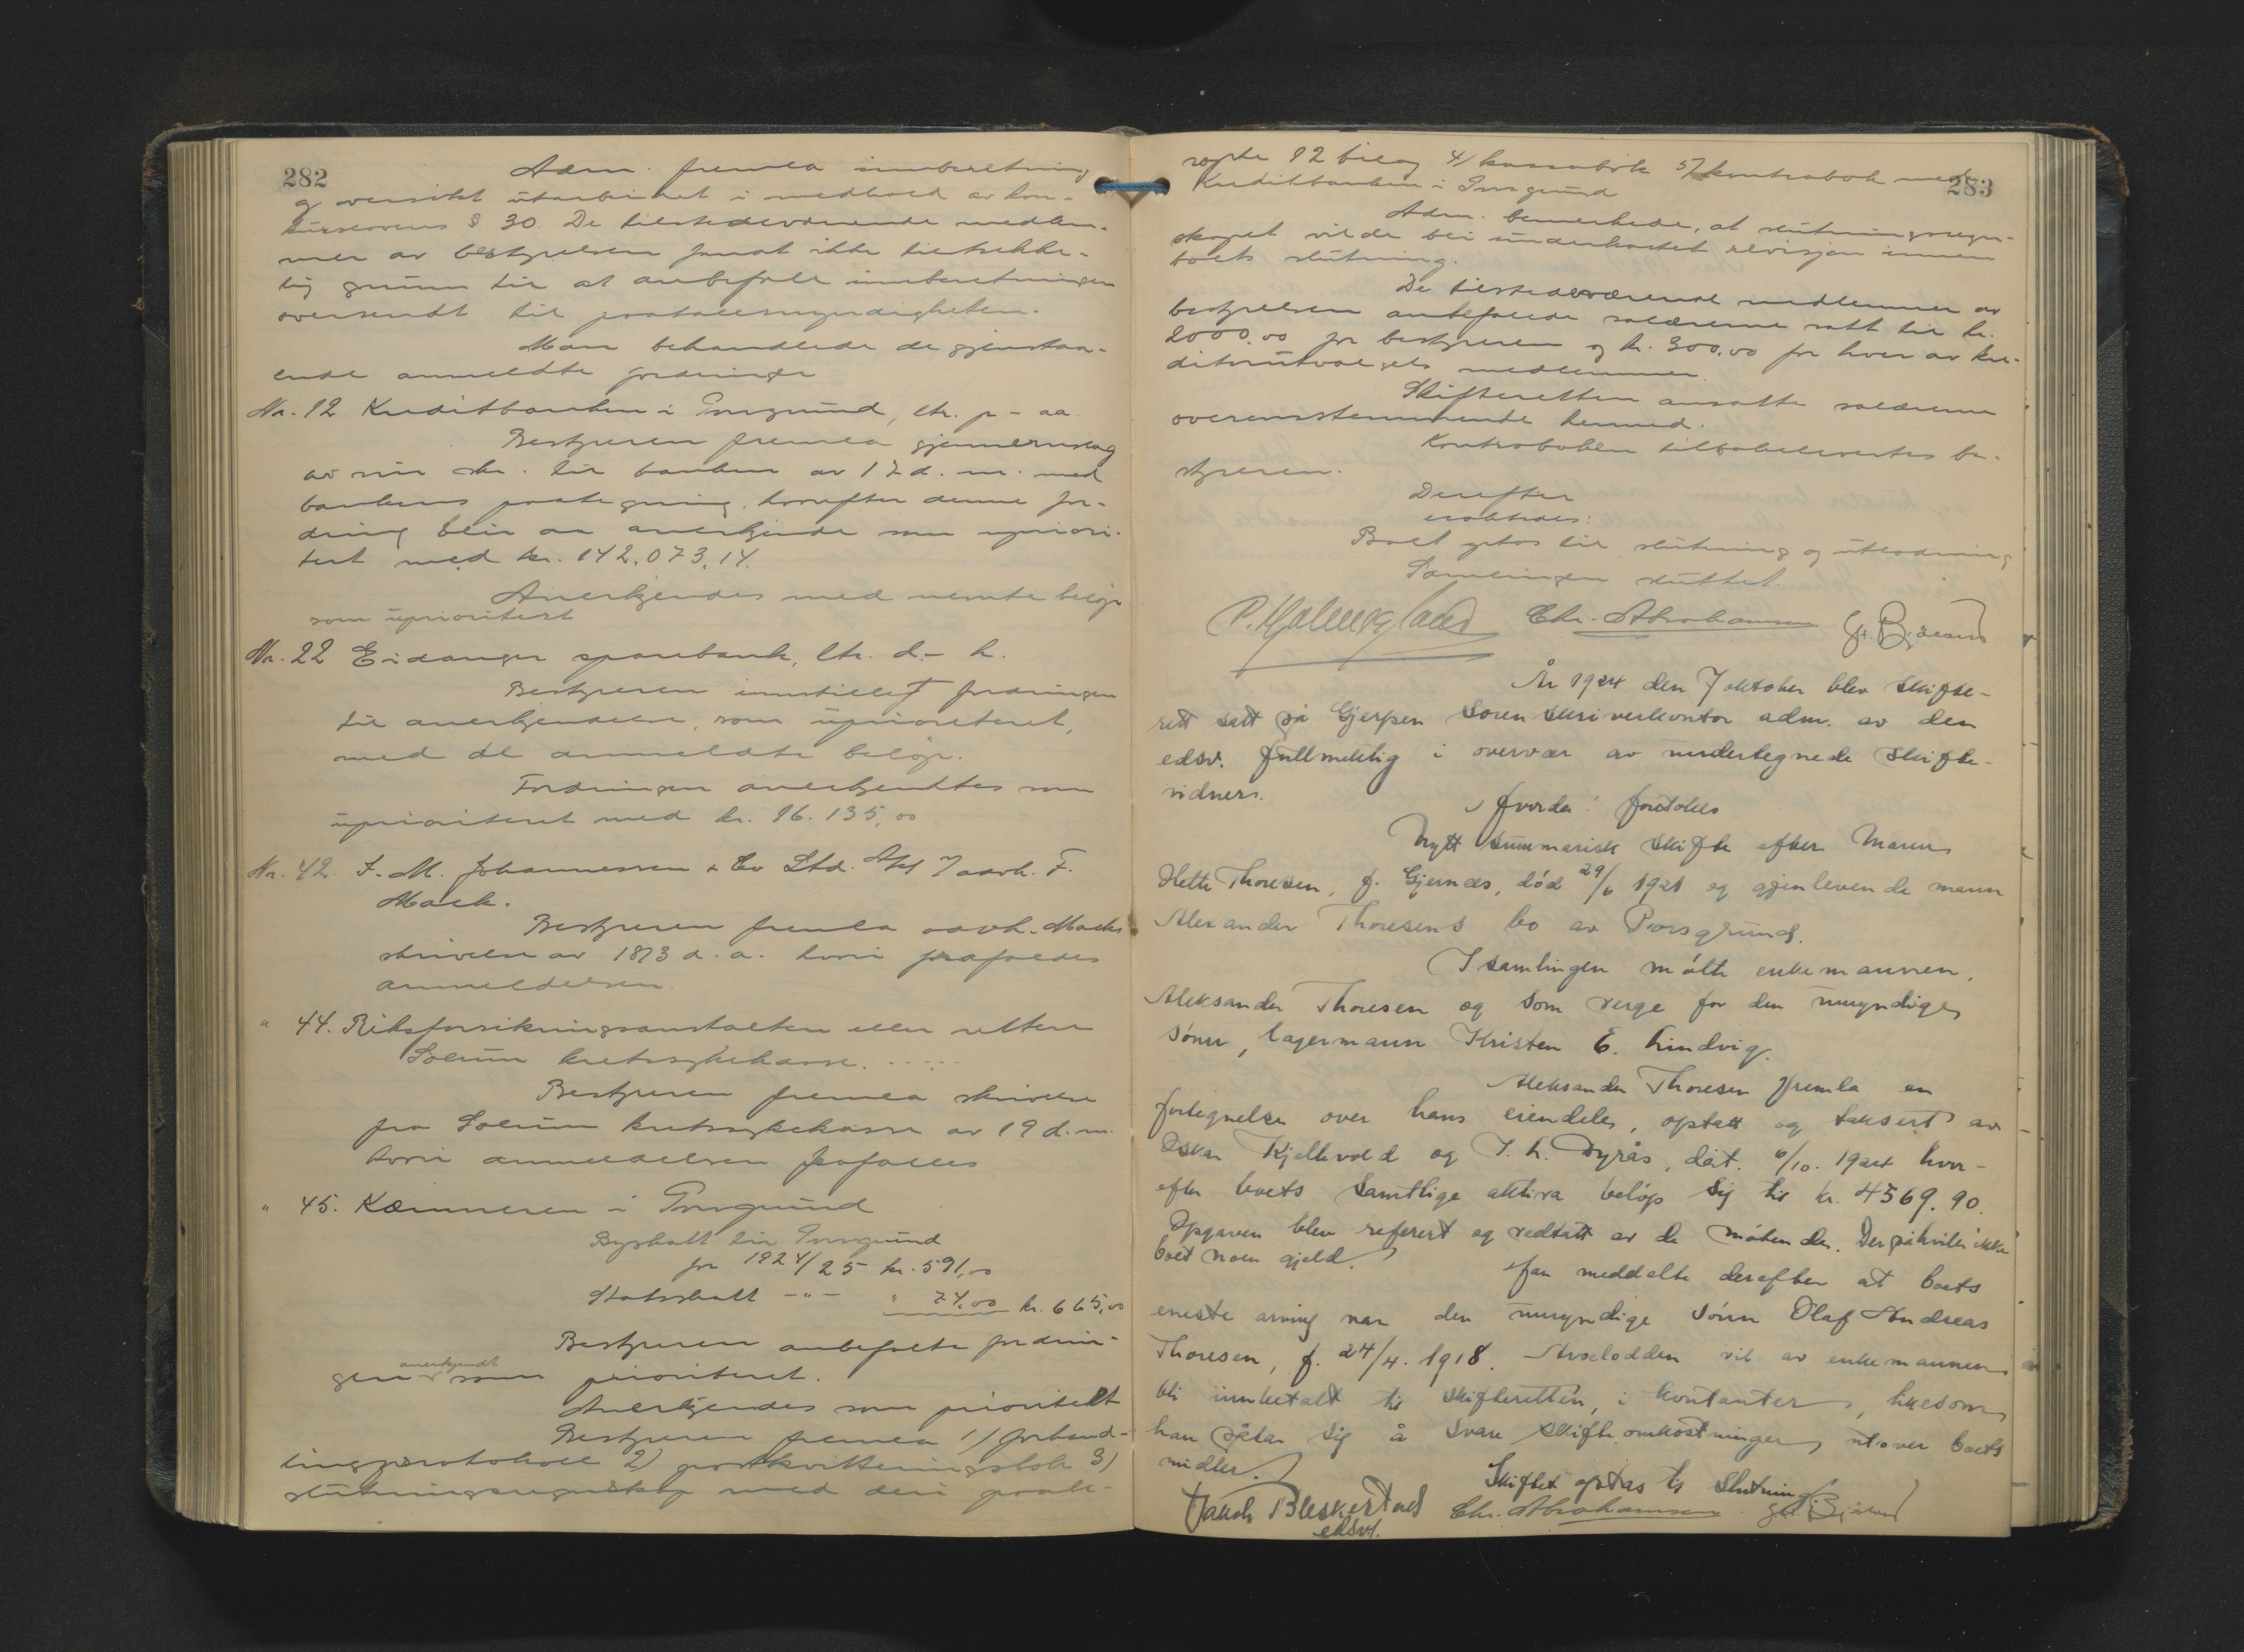 282
Adm. fremla innberetning
og oversikt utarbeidet i medhold av kon-
kurslovens § 30. De tilstedeværende medlem-
mer av bestyrelsen fandt ikke tilstrekke-
lig grunn til at anbefale innberetningen
oversendt til paatalemyndigheten.
Man behandlede de gjenstaa-
ende anmeldte fordringer
Nr. 12 Kreditbanken i Porsgrund, ltr. p - aa.
Bestyreren fremla gjennemslag
av sin skr. til banken av 17 d. m. med
bankens paategning, hvorefter denne for-
dring blir at anerkjende som upriori-
tert med kr. 142.073,14.
Anerkjendes med nevnte beløp
som uprioritert
Nr. 22 Eidanger sparebank, ltr. d - h.
Bestyreren innstillet fordringen
til anerkjendelse, som uprioriteret,
med det anmeldte beløp.
Fordringen anerkjendtes som
uprioriteret med kr. 16.135,00
Nr. 42 J. M. Johannessen & Co Ltd. A/S v/ advh. F.
Mack.
Bestyreren fremla advh. Macks
skrivelse av 18/3 d. a. hvori frafaldes
anmeldelsen.
" 44. Riksforsikringsanstalten eller rettere
Solum kretssykekasse.
Bestyreren fremla skrivelse
fra Solum kretssykekasse av 19 d. m.
hvori anmeldelsen frafalles
" 45. Kæmneren i Porsgrund
Byskatt til Porsgrund
for 1924/25 kr. 591,00
Statsskatt - " - " 74,00 kr. 665,00
Bestyreren anbefalte fordrin-
gen anerkjendt som prioriteret.
Anerkjendes som prioritert
Bestyreren fremla 1) forhand-
lingsprotokoll 2) postkvitteringsbok 3)
slutningsregnskap med deri paabe-
283
ropte 12 bilag 4) kassabok 5) kontrabok med
Kreditbanken i Porsgrund
Adm. bemerkede, at slutningsregn-
skapet vilde bli underkastet revisjon innen
boets slutning.
De tilstedeværende medlemmer av
bestyrelsen anbefalede salærerne satt til kr.
2000.00 for bestyreren og kr. 300,00 for hver av kre-
ditorutvalgets medlemmer.
Skifteretten ansatte salærerne
overensstemmende hermed.
Kontraboken tilbakelevertes be-
styreren.
Derefter
Boet optas til slutning og utlodning
Samlingen sluttet.
Chr. Abrahamsen
År 1924 den 7 oktober blev skifte-
rett satt på Gjerpen Sorenskriverkontor adm. av den
edsv. fullmektig i overvær av undertegnede skifte-
vidner.
Hvorda: foretokes
Nytt summarisk skifte efter Maren
Hette Thoresen, f. Gjernæs, død 29/6 1921 og gjenlevende mann
Alexander Thoresens bo av Porsgrund.
I samlingen møtte enkemannen,
Aleksander Thoresen og som verge for den umyndige
sønn, lagermann Kristen E. Lindvig.
Aleksander Thoresen fremla en
fortegnelse over hans eiendeler, optatt og taksert av
Oskar Kjellevold og J. L. Dyrås, dat. 6/10. 1924 hvor-
efter boets samtlige aktiva beløp sig til kr. 4569.90.
Opgaven blev referert og vedtatt av de møtende. Der påhviler ikke
boet noen gjeld.
Han meddelte derefter at boets
eneste arving var den umyndige sønn Olaf Andreas
Thoresen, f. 24/4. 1918. Arvelodden vil av enkemannen
bli innbetalt til skifteretten, i kontanter, likesom
han påtar sig å svare skifteomkostninger utover boets
midler.
Skiftet optas til slutning.
Jacob Bleskestad Chr. Abrahamsen
edsv.